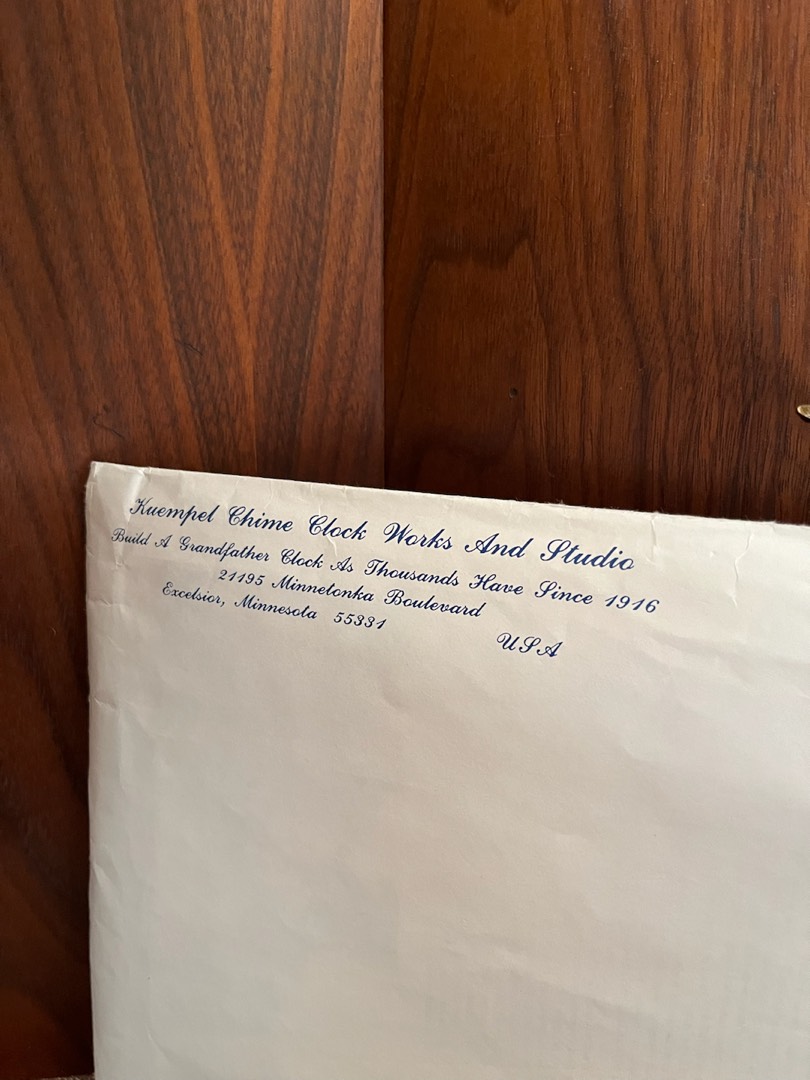 Kuempel Chime Clock Works And Studio
Build A Grandfather Clock As Thousands Have Since 1916
21195 Minnetonka Boulevard
Excelsior, Minnesota 55331
USA